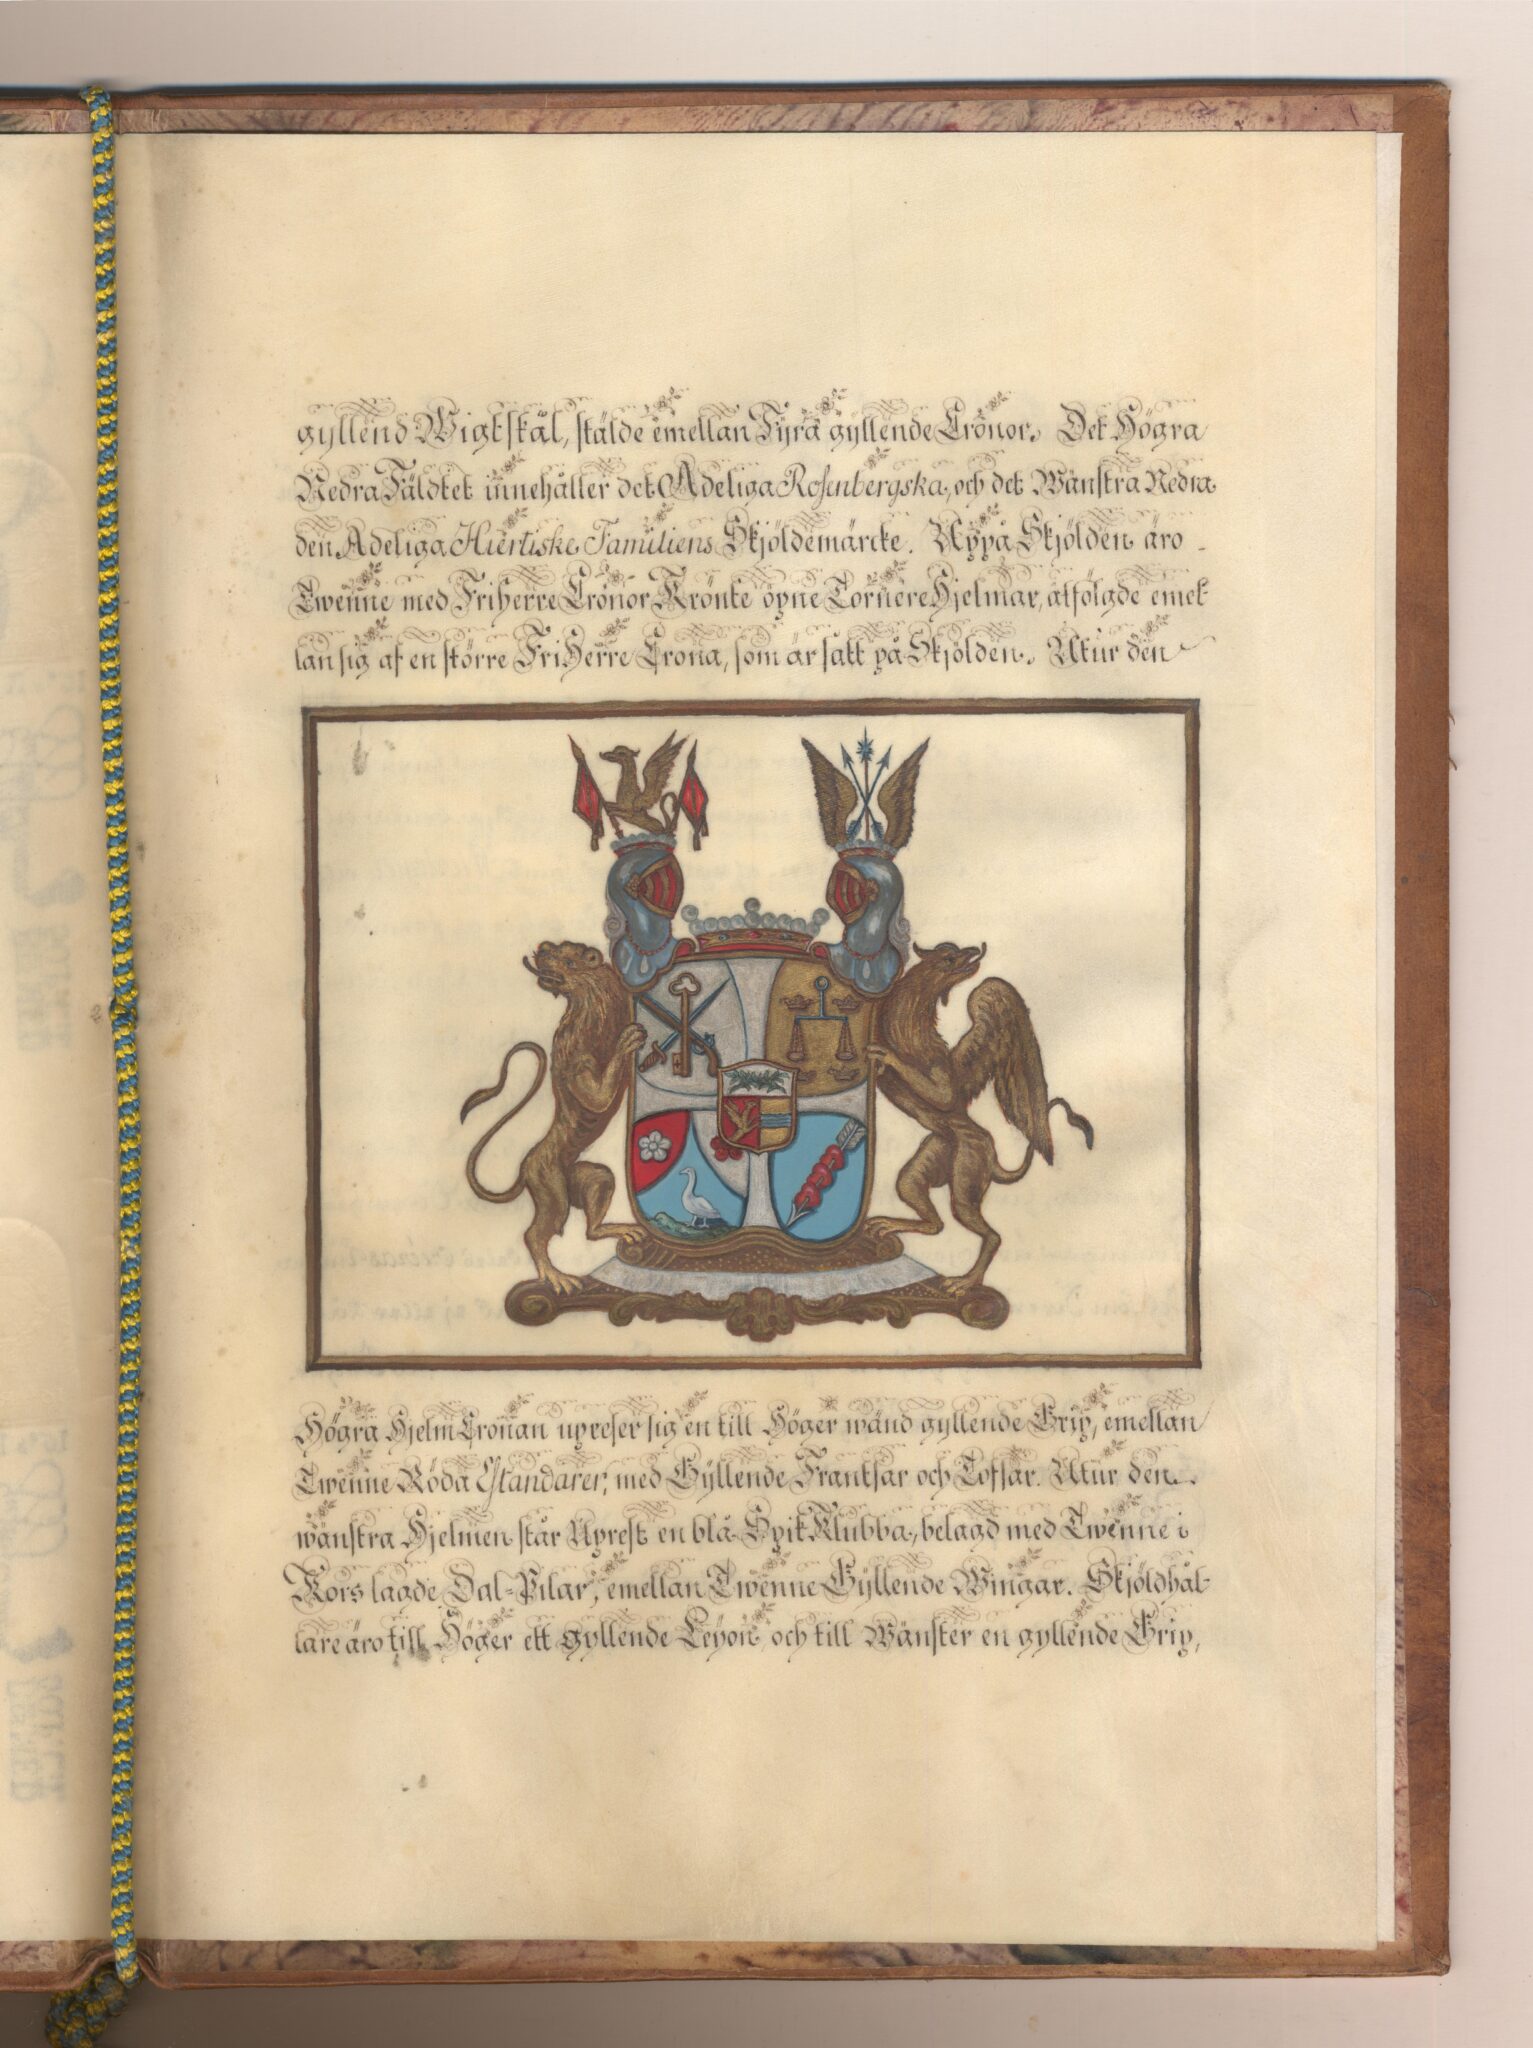 gyllend Wigtskål, stälde emellan Fyra gyllende Cronor. Det Högra
Nedra Fäldtet innehåller det Adeliga Rosenbergska, och det Wänstra Nedra
den Adeliga Hiertiske Familiens Skjöldemärcke. Uppå Skjölden äro
Twenne med Friherre Cronor Krönte öpne Tornere Hjelmar, åtfölgde emel-
lan sig af en större FriHerre Crona, som är satt på Skjölden. Utur den
Högra Hjelm Cronan upreser sig en till Höger wänd gyllende Grip, emellan
Twenne Röda Standarer, med Gyllende Frantsar och Tofsar. Utur den
wänstra Hjelmen står Uprest en blå Spik Klubba, belagd med Twenne i
Kors lagde Dal-Pilar, emellan Twenne Gyllende Wingar. Skjöldhål-
lare äro till Höger ett gyllende Leyon, och till Wänster en gyllende Grip,